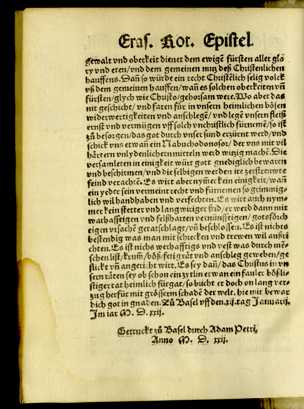 Eras. Rot. Epistel.
gewalt vnd oberkeit dienet dem ewigē fürsten aller glo
ry vnd eren/vnd dem gemeinen nutz deß Christenlichen
hauffens. Dañ so würde ein recht Christēlich selig volck
vß dem gemeinen hauffen/wañ es solchen oberkeitē vñ
fürsten/glych wie Christo/gehorsam were. Wo aber das
nit geschicht/vnd faren für in vnsern heimlichen bösen
widerwertigkeiten vnd anschlegē/vnd legē vnsern fleiß
ernst vnd vermügen vff solch vnchristlich fürnemē/so ist
zů besorgen/das got durch vnser sünd erzürnt werd/vnd
schick vns etwan ein Nabuchodonosor/ der vns mit vil
hertern vnlydenlichern mitteln werd witzig machē. Die
versamleten in einigkeit wirt got gnediglich bewaren
vnd beschirmen/vnd die selbigen werden irer zerströwte
feind verachtē. Es wirt aber nym̄er kein einigkeit/wañ
ein yeder sein vermeint recht vnd fürnemē so grimmig-
lich wil handhaben vnd verfechten. Es wirt auch nym
mer kein stetter vnd langwiriger frid/er werd dann mit
warhafftigen vnd
eigen vrsachē geratschlagt/vñ beschlossen. Es ist nichts
bestendig was man mit schicken vnd trewen wil auffri
chten. Es ist nichts werhafftig vnd vest was durch mē-
schen list/kunst/böß
klich vñ angericht wirt. Es sey dañ/das Christus in vn
sern räten sey
stiger rat heimlich fürgat/so bricht er doch on lang ver-
zug herfür mit grösserm schaden der welt. hie mit bewar
dich got in gnaden. Zů Basel vff den xij. tag Januarij.
Im iar M. D. xxij.
Getruckt zů Basel durch Adam Petri,
Anno M. D. xxij.